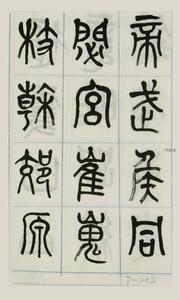 帝武侯同
閟宮崔嵬
枝幹郊原
P-202